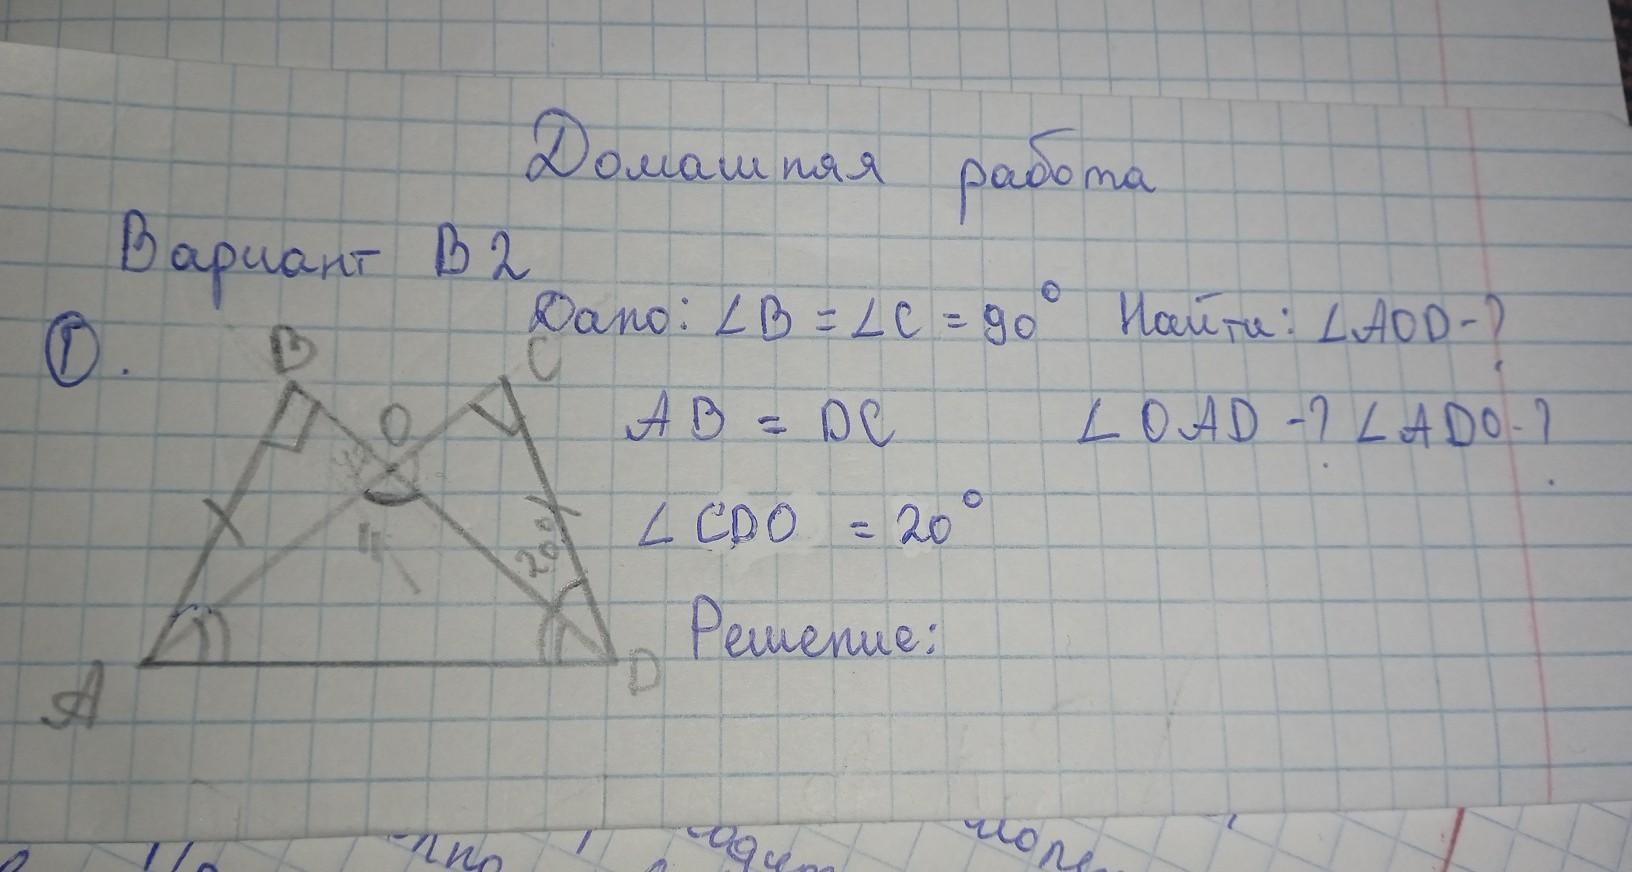 Домашняя работа
Вариант В2
Дано: ∠B = ∠C = 90° Найти: ∠AOD-?
①.
B C
O
AB = DC ∠OAD -? ∠ADO-?
∠CDO = 20°
20°
Решение:
A D